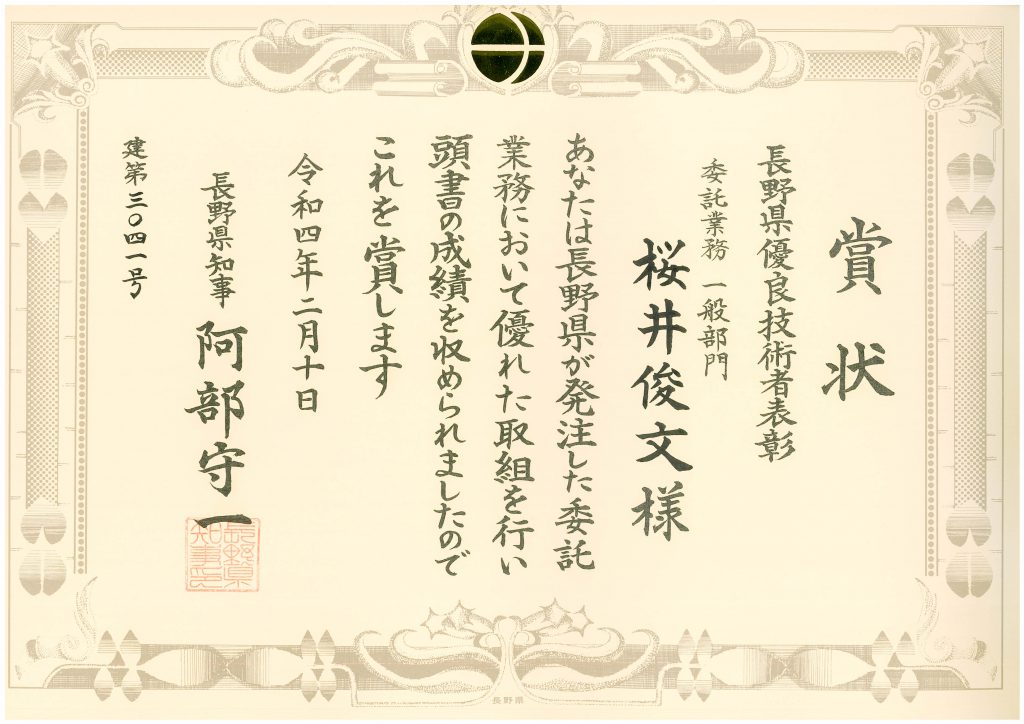 賞状
長野県優良技術者表彰
委託業務 一般部門
桜井俊文様
あなたは長野県が発注した委託
業務において優れた取組を行い
頭書の成績を収められましたので
これを賞します
令和四年二月十日
長野県知事 阿部守一
長野県知事之印
建第三〇四一号
長野県